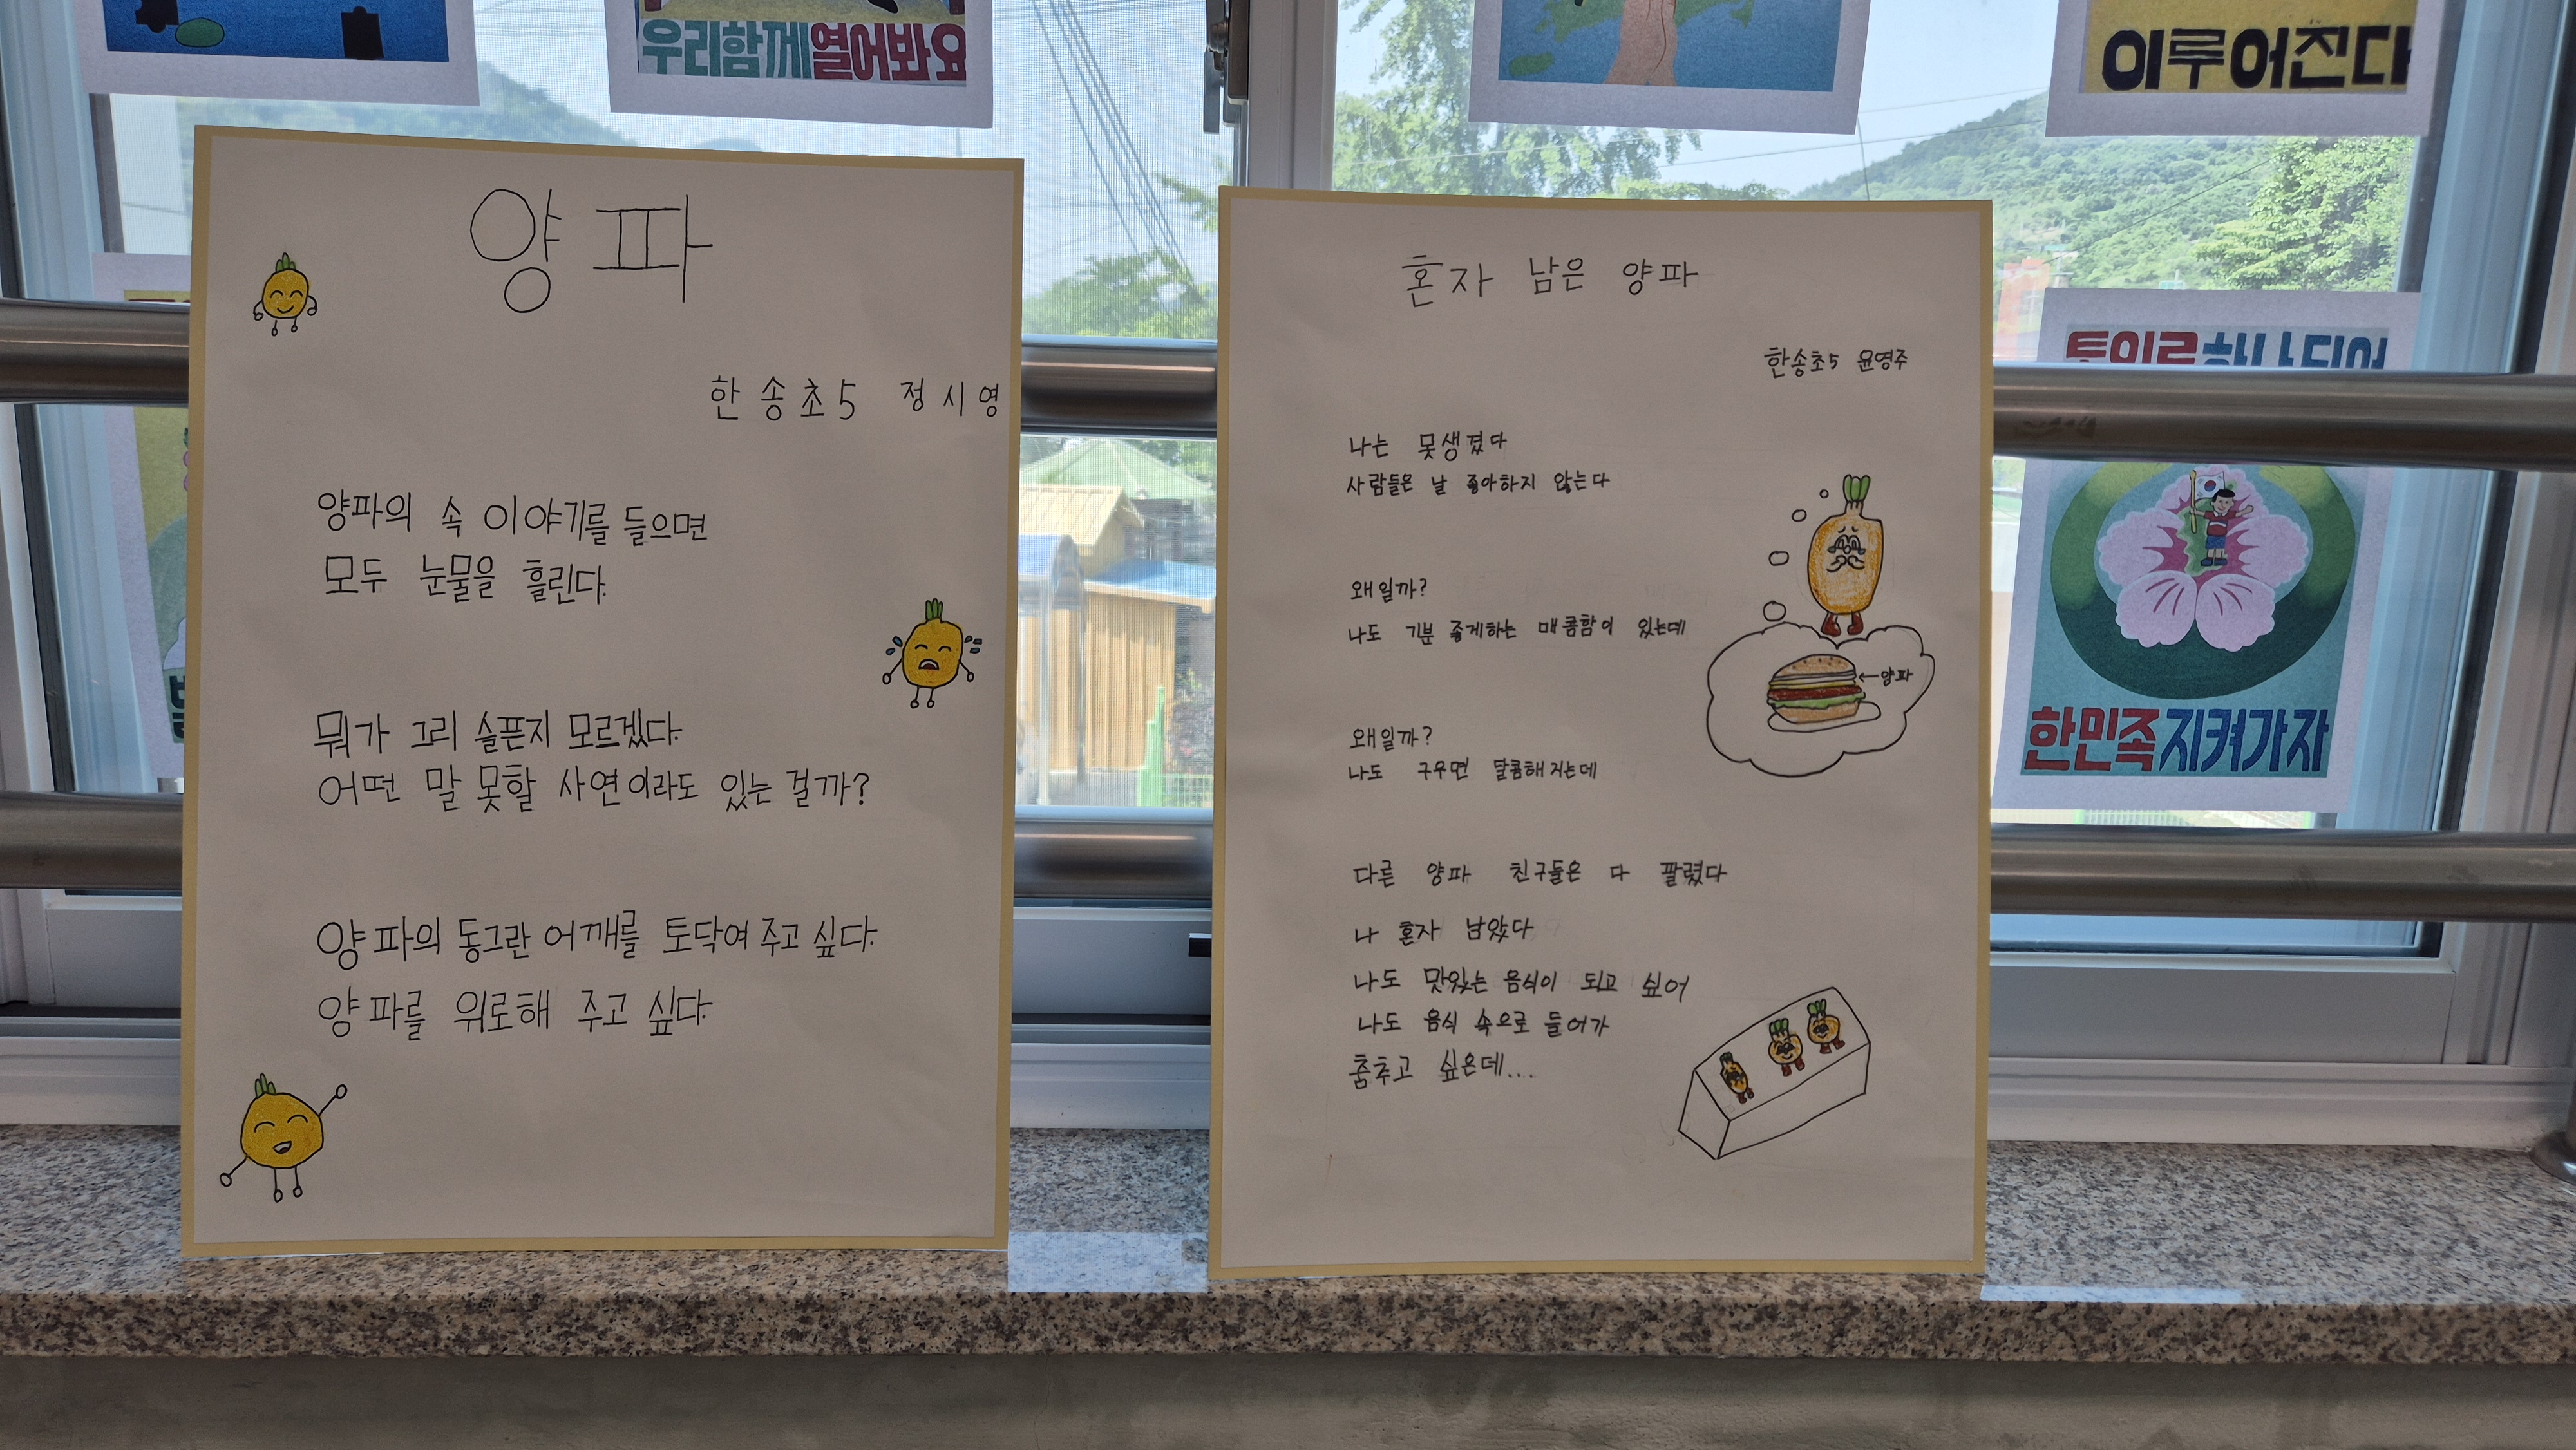 우리함께열어봐요
이루어진다
양파
한송초5 정시영
양파의 속 이야기를 들으면
모두 눈물을 흘린다.
뭐가 그리 슬픈지 모르겠다.
어떤 말 못할 사연이라도 있는 걸까?
양파의 동그란 어깨를 토닥여 주고 싶다.
양파를 위로해 주고 싶다.
혼자 남은 양파
한송초5 윤영주
나는 못생겼다
사람들은 날 좋아하지 않는다
왜일까?
나도 기분 좋게하는 매콤함이 있는데
←양파
왜일까?
나도 구우면 달콤해지는데
다른 양파 친구들은 다 팔렸다
나 혼자 남았다
나도 맛있는 음식이 되고 싶어
나도 음식 속으로 들어가
춤추고 싶은데...
한민족지켜가자